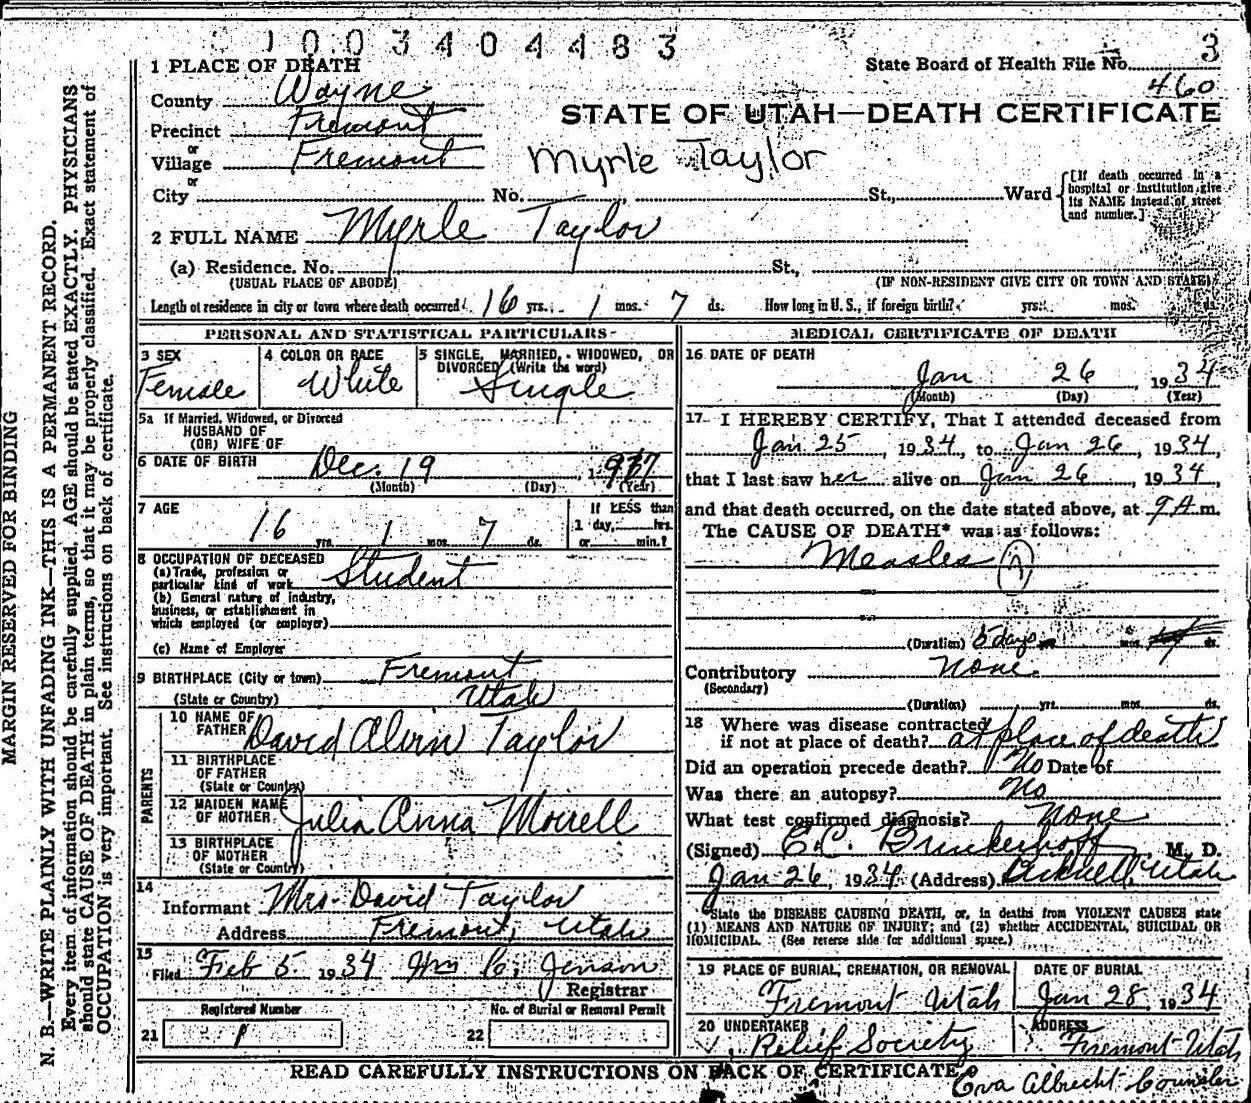 1003404483
3
State Board of Health File No.
460
1 PLACE OF DEATH
County Wayne
STATE OF UTAH—DEATH CERTIFICATE
Precinct Fremont
or
Village Fremont
Myrle Taylor
or
City No. St., Ward
[If death occurred in a hospital or institution, give its NAME instead of street and number.]
2 FULL NAME Myrle Taylor
(a) Residence. No. St.,
(USUAL PLACE OF ABODE) (IF NON-RESIDENT GIVE CITY OR TOWN AND STATE)
Length of residence in city or town where death occurred 16 yrs. 1 mos. 7 ds. How long in U. S., if foreign birth? yrs. mos. ds.
PERSONAL AND STATISTICAL PARTICULARS
3 SEX
Female
4 COLOR OR RACE
White
5 SINGLE, MARRIED, WIDOWED, OR
DIVORCED (Write the word)
Single
5a If Married, Widowed, or Divorced
HUSBAND OF
(OR) WIFE OF
6 DATE OF BIRTH Dec. 19, 1917
(Month) (Day) (Year)
7 AGE
16 yrs. 1 mos. 7 ds.
If LESS than
1 day, hrs.
or min.?
8 OCCUPATION OF DECEASED
(a) Trade, profession or
particular kind of work Student
(b) General nature of industry,
business, or establishment in
which employed (or employer)
(c) Name of Employer
9 BIRTHPLACE (City or town) Fremont
(State or Country) Utah
PARENTS
10 NAME OF
FATHER David Alvin Taylor
11 BIRTHPLACE
OF FATHER
(State or Country)
12 MAIDEN NAME
OF MOTHER Julia Anna Morrell
13 BIRTHPLACE
OF MOTHER
(State or Country)
14
Informant Mrs. David Taylor
Address Fremont, Utah
15
Filed Feb 5 1934 Wm C. Jenson
Registrar
Registered Number
21 1
No. of Burial or Removal Permit
22
MEDICAL CERTIFICATE OF DEATH
16 DATE OF DEATH
Jan 26, 1934
(Month) (Day) (Year)
17 I HEREBY CERTIFY, That I attended deceased from
Jan 25, 1934, to Jan 26, 1934,
that I last saw her alive on Jan 26, 1934,
and that death occurred, on the date stated above, at 9 A m.
The CAUSE OF DEATH* was as follows:
Measles
(Duration) 5 days yrs. mos. ds.
Contributory None
(Secondary)
(Duration) yrs. mos. ds.
18 Where was disease contracted
if not at place of death? at place of death
Did an operation precede death? No Date of
Was there an autopsy? No
What test confirmed diagnosis? None
(Signed) E.C. Brinkerhoff, M. D.
Jan 26, 1934 (Address) Bicknell, Utah
*State the DISEASE CAUSING DEATH, or, in deaths from VIOLENT CAUSES state
(1) MEANS AND NATURE OF INJURY; and (2) whether ACCIDENTAL, SUICIDAL OR
HOMICIDAL. (See reverse side for additional space.)
19 PLACE OF BURIAL, CREMATION, OR REMOVAL
Fremont Utah
DATE OF BURIAL
Jan 28, 1934
20 UNDERTAKER
Relief Society
ADDRESS
Fremont Utah
Eva Albrecht Counselor
READ CAREFULLY INSTRUCTIONS ON BACK OF CERTIFICATE
MARGIN RESERVED FOR BINDING
N. B.—WRITE PLAINLY WITH UNFADING INK—THIS IS A PERMANENT RECORD.
Every item of information should be carefully supplied. AGE should be stated EXACTLY. PHYSICIANS
should state CAUSE OF DEATH in plain terms, so that it may be properly classified. Exact statement of
OCCUPATION is very important. See instructions on back of certificate.